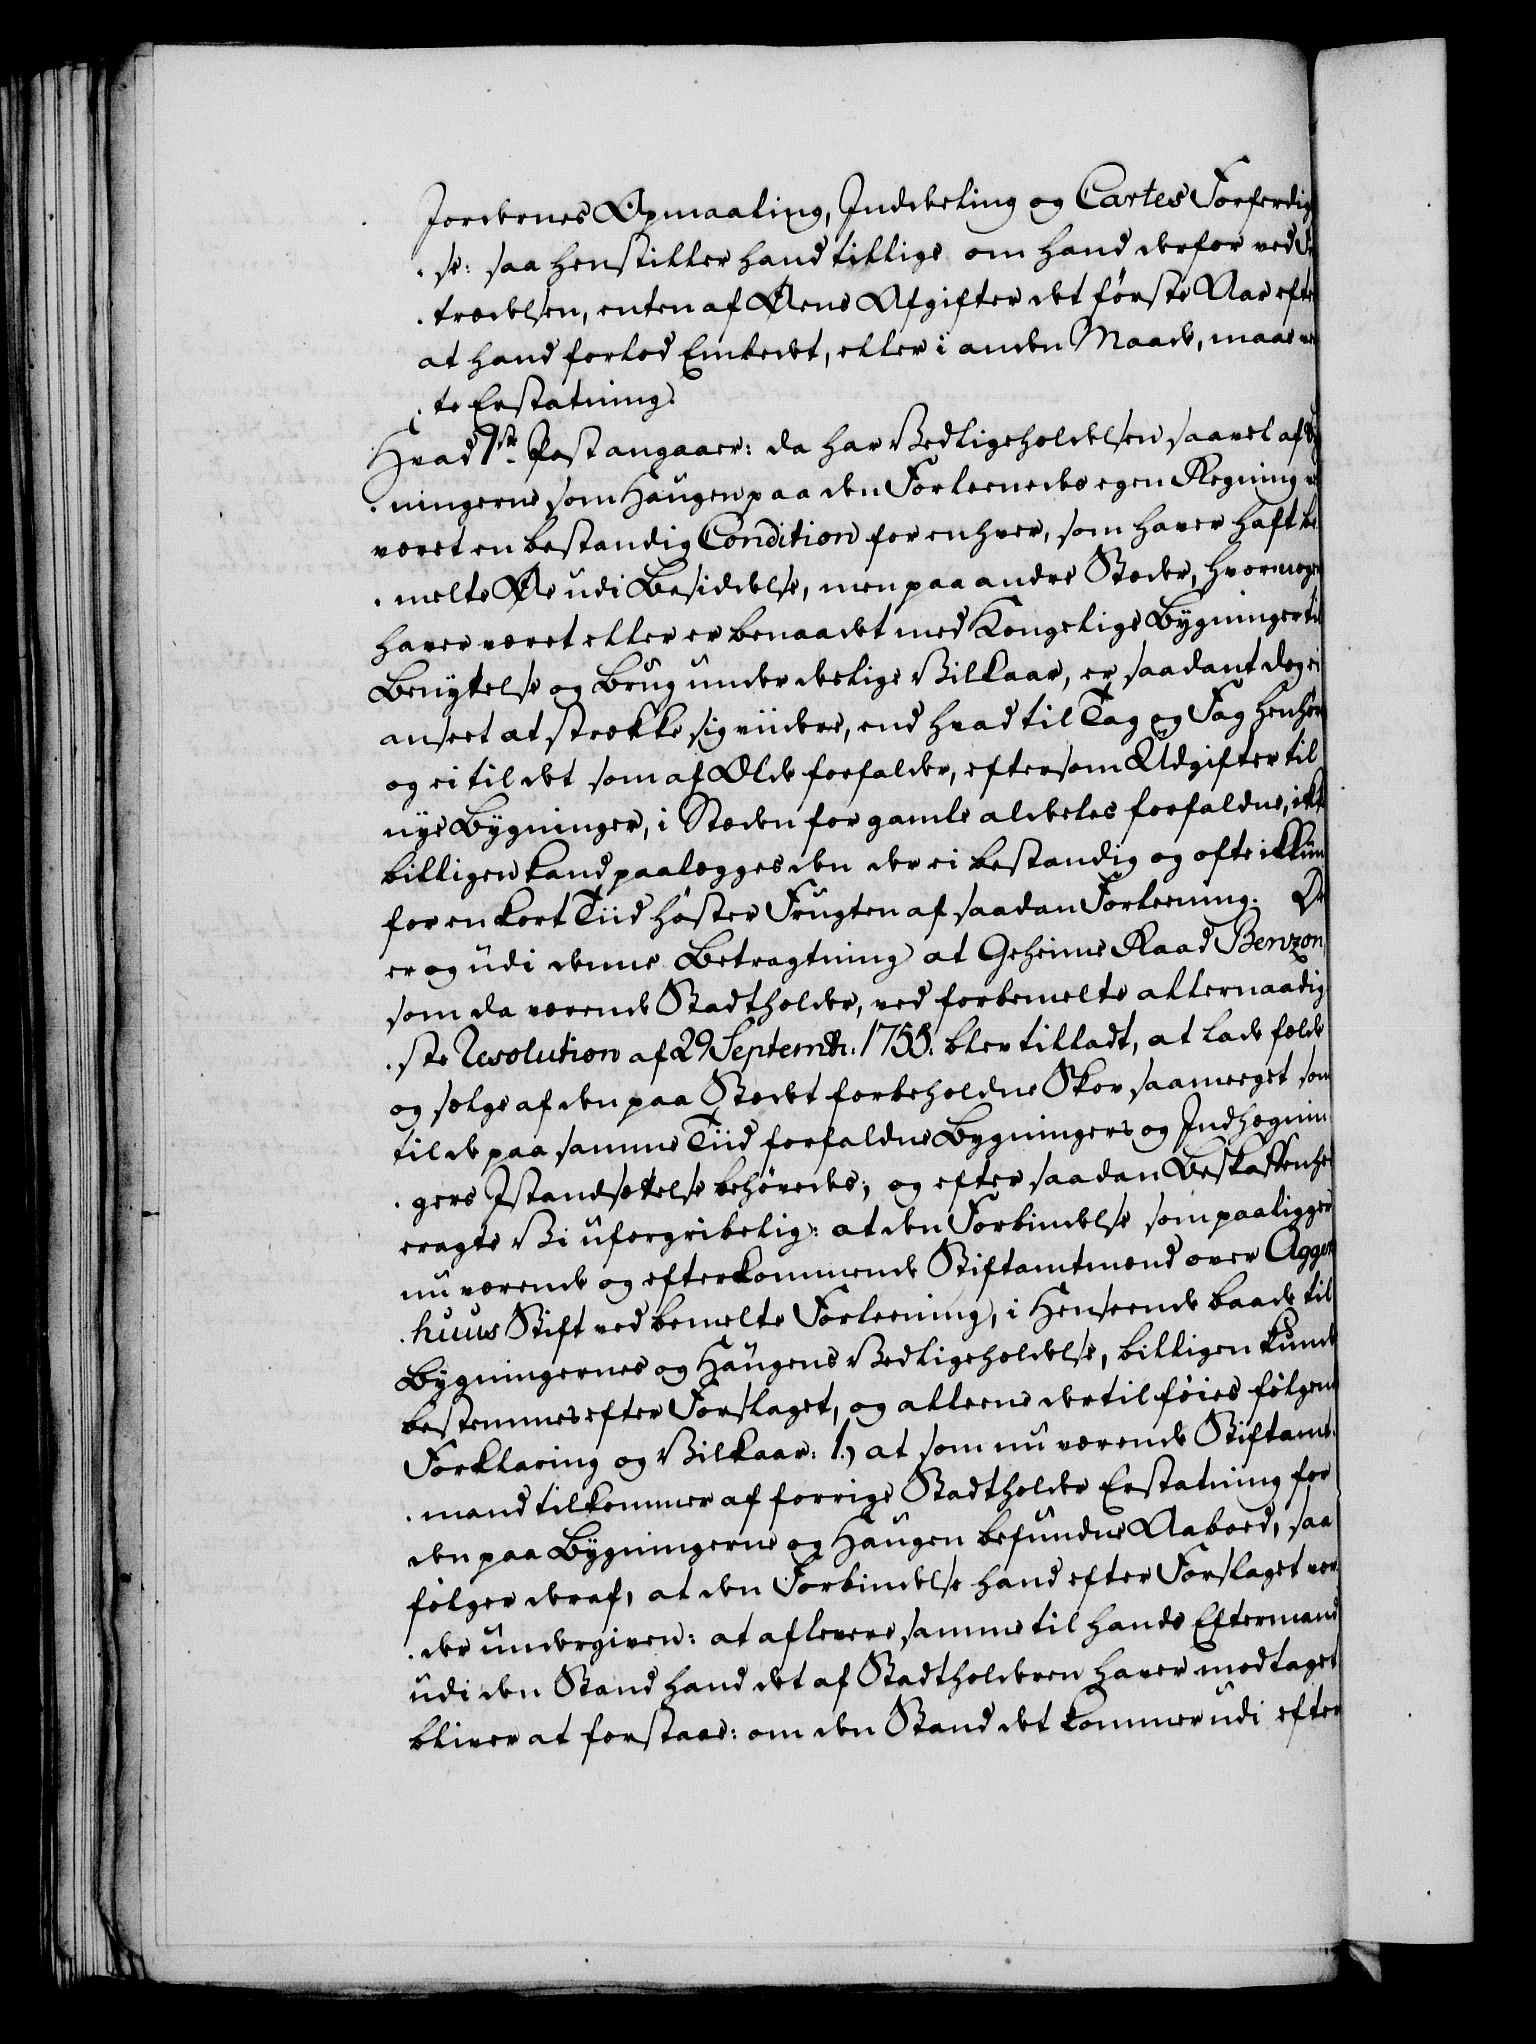 Jordernes Opmaaling, Inddeling og Cartes Forferdig
se: saa henstiller hand tillige om hand derfor ved
trædelsen, enten af Øens Afgifter det første Aar efte
at hand forlod Embedet, eller i anden Maade, maae
te Erstatning.
Hvad 1ste Post angaaer: da har Vedligeholdelsen saavel af
ningerne som Haugen paa den Forleenedes egen Regning
været en bestandig Condition for enhver, som haver haft be
melte Øe udi Besiddelse, men paa andre Stæder, hvor nogen
haver været eller er benaadet med Kongelige Bygninger til
Benyttelse og Brug under deslige Vilkaar, er saadant dog ei
anseet at strække sig viidere, end hvad til Tag og Fag henhør
og ei til det som af Ælde forfalder, eftersom Udgifter til
nye Bygninger, i Stæden for gamle aldeles forfaldne, ikke
billigen kand paalægges den der ei bestandig og ofte ikkun
for en kort Tiid høster Frugten af saadan Forleening. De
er og udi denne Betragtning at Geheime Raad Benzon
som da værende Stadtholder, ved forbemelte allernaadig
ste Resolution af 29 Septembr. 1755. blev tilladt, at lade fælde
og sælge af den paa Stædet forbeholdne Skov saameeget som
til de paa samme Tiid forfaldne Bygningers og Indhægnin
gers Istandsættelse behøvedes; og efter saadan Beskaffenhe
eragte Vi uforgribelig: at den Forbindelse som paaligger
nu værende og efterkommende Stiftamtmænd over Agger
huus Stift ved bemelte Forleening, i Henseende baade til
Bygningernes og Haugens Vedligeholdelse, billigen kunde
bestemmes efter Forslaget, og alleene dertil føies følgen
Forklaring og Vilkaar: 1.) at som nu værende Stiftamt
mand tilkommer af forrige Stadtholder Erstatning for
den paa Bygningerne og Haugen befundne Aaboed, saa
følger deraf, at den Forbindelse hand efter Forslaget vor
der undergiven: at aflevere samme til hands Eftermand
udi den Stand hand det af Stadtholderen haver modtaget
bliver at forstaae: om den Stand det kommer udi efter